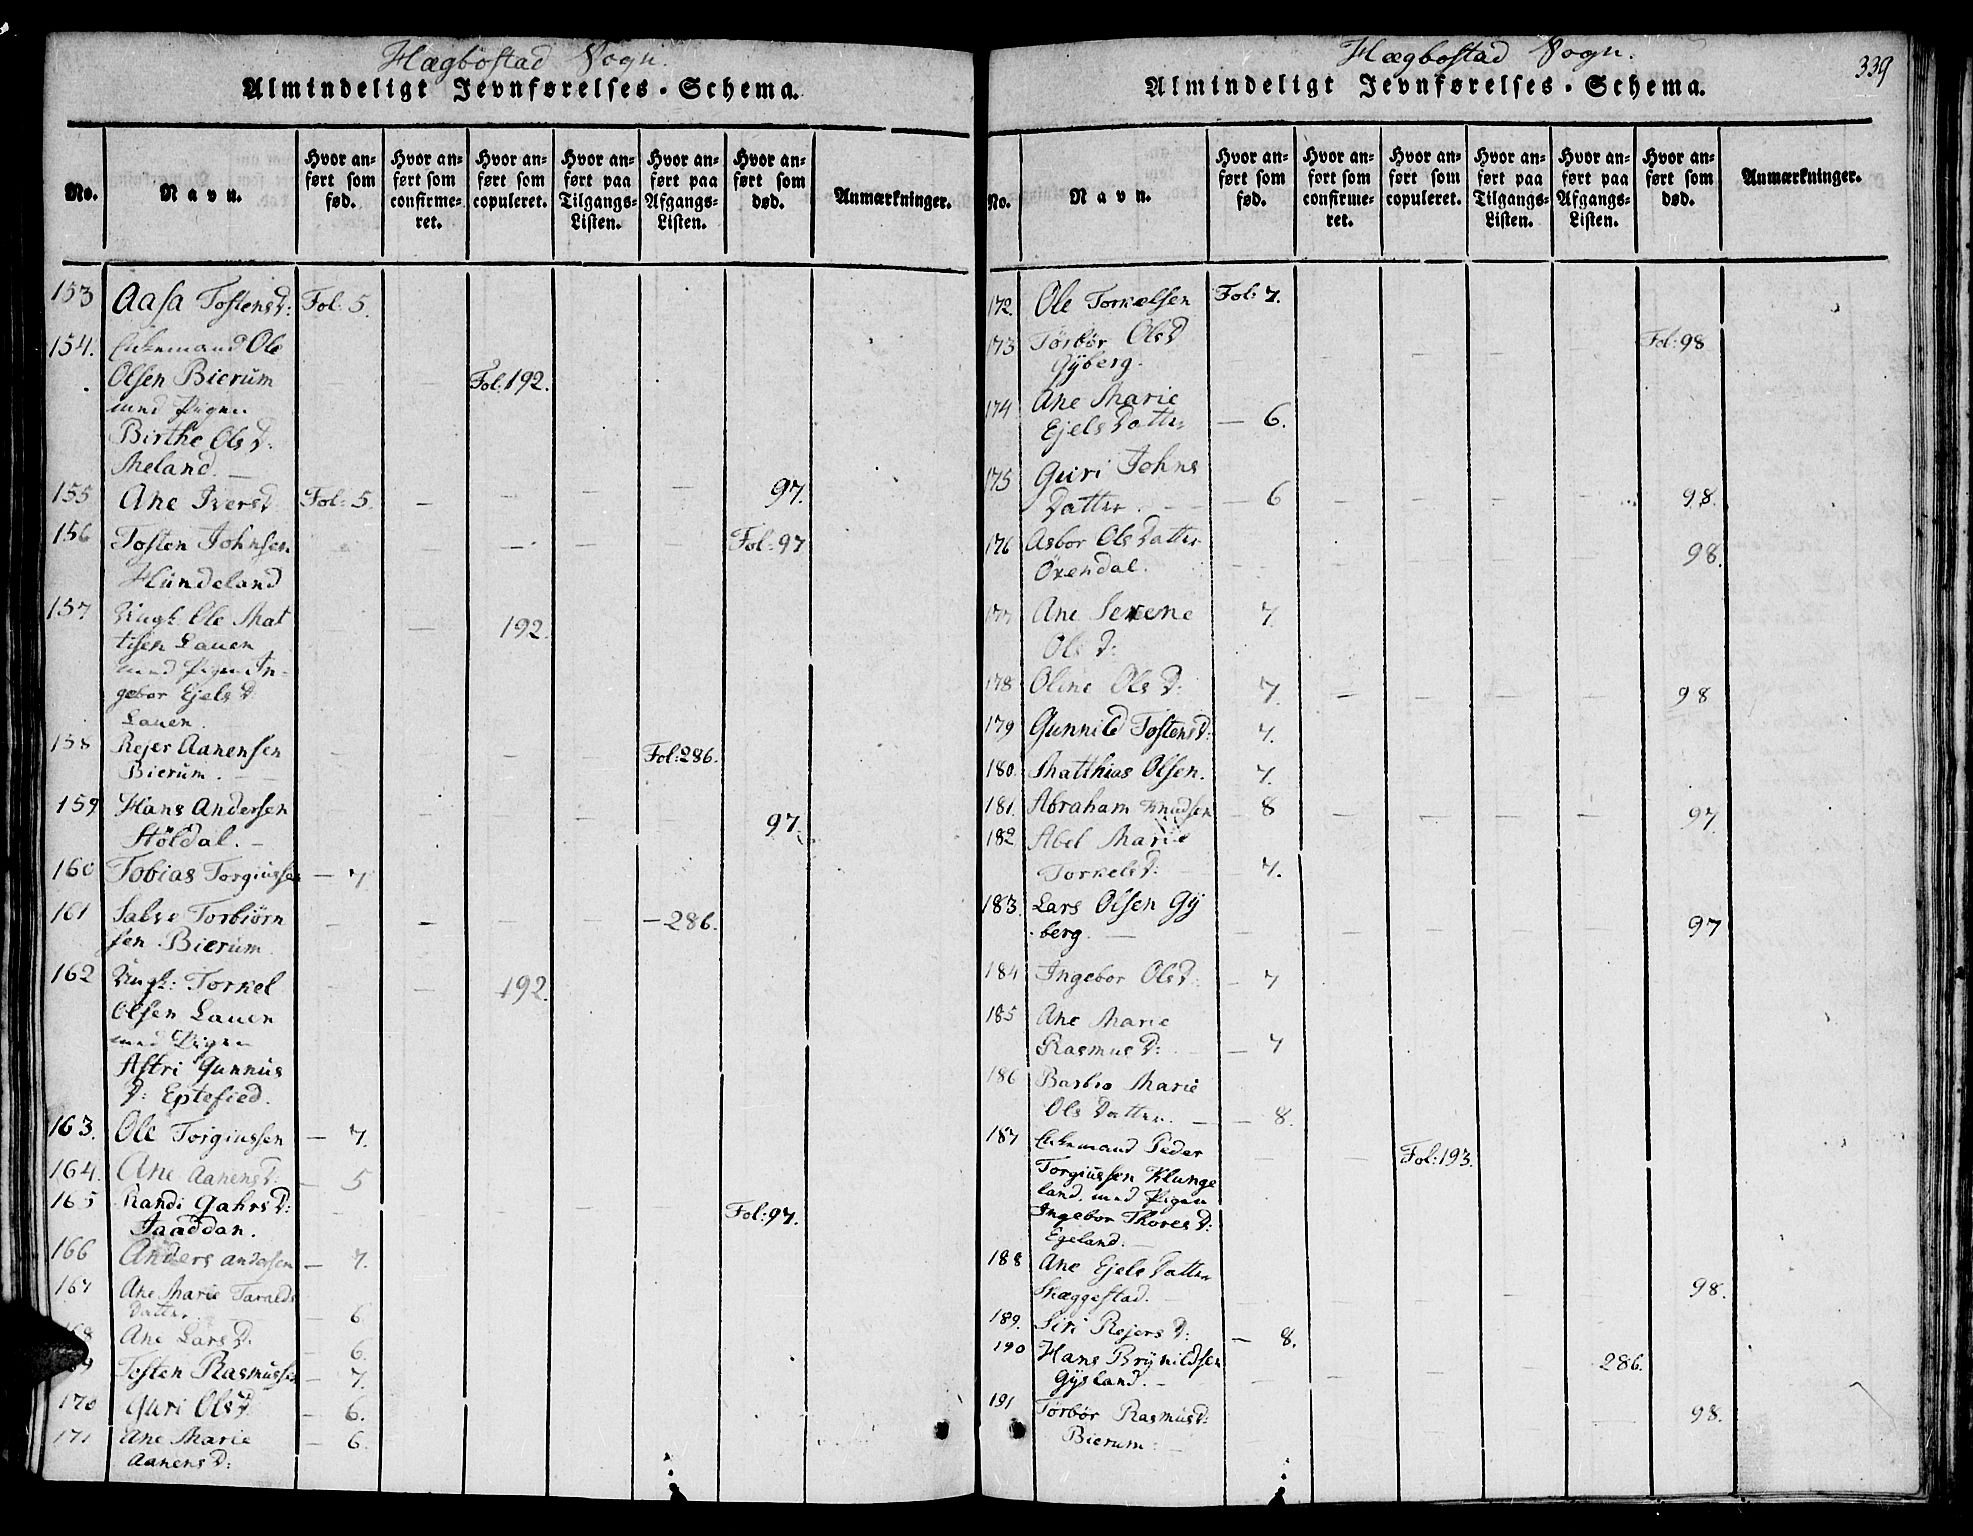 Hægbostad Sogn.
Almindeligt Jevnførelses-Schema.
No.
Navn.
Hvor an-
ført som
fød.
Hvor an-
ført som
confirme-
ret.
Hvor an-
ført som
copuleret.
Hvor an-
ført paa
Tilgangs-
Listen.
Hvor an-
ført paa
Afgangs-
Listen.
Hvor an-
ført som
død.
Anmærkninger.
153 Aasa Tostensd: Fol: 5.
154. Enkemand Ole
Olsen Bierum Fol: 192.
med Pigen
Birthe Olsd:
Meland.
155 Ane Iversd Fol: 5. 97.
156 Tosten Johnsen Fol: 97
Hundeland
157 Ungk: Ole Mat 192.
tisen Lauen
med Pigen In-
gebor Ejelsd
Lauen.
158 Rejer Aanensen Fol: 286.
Bierum.
159 Hans Andersen 97.
Stöldal.
160 Tobias Torgiussen — 7
161 Salve Torbiörn — 286.
sen Bierum.
162 Ungk: Torkel 192.
Olsen Lauen
med Pigen
Astri Gunnus
D: Eptesied.
163. Ole Torgiussen — 7.
164. Ane Aanensd: — 5
165 Randi Gahrsd: Fol: 97.
Jaaddan.
166 Anders Andersen — 7.
167 Ane Marie Taralds
Datter — 6.
168 Ane Larsd: — 6.
Tosten Rasmussen — 7.
170 Guri Olsd — 6.
171 Ane Marie — 6.
Aanensd:
Hægbostad Sogn.
339
Almindeligt Jevnførelses-Schema.
No.
Navn.
Hvor an-
ført som
fød.
Hvor an-
ført som
confirme-
ret.
Hvor an-
ført som
copuleret.
Hvor an-
ført paa
Tilgangs-
Listen.
Hvor an-
ført paa
Afgangs-
Listen.
Hvor an-
ført som
død.
Anmærkninger.
172. Ole Torkelsen Fol: 7.
173 Törbör Olsd Fol: 98
Gyberg.
174 Ane Marie
Ejelsdatter — 6.
175 Guri Johns
Datter. — 6 98.
176 Asbor Olsdatter 98.
Öxendal.
177 Ane Serene 7
Olsd:
178 Oline Olsd: 7. 98
179 Gunnild Tostensd: 7.
180. Matthias Olsen. 7.
181. Abraham Knudsen — 8 97.
182 Abel Marie
Torkelsd: — 7.
183. Lars Olsen Gy
berg. 97
184 Ingebor Olsd: — 7
185 Ane Marie
Rasmusd: — 7
186 Barbro Marie
Olsdatter. — 8.
187 Enkemand Peder Fol: 193.
Torgiussen Klunge
land. med Pigen
Ingebor Thoresd:
Egeland.
188 Ane Ejelsdatter
Skæggestad. 98.
189. Siri Rejersd: — 8.
190 Hans Brynildsen 286.
Gysland.
191 Törbör Rasmusd: 98.
Bierum: